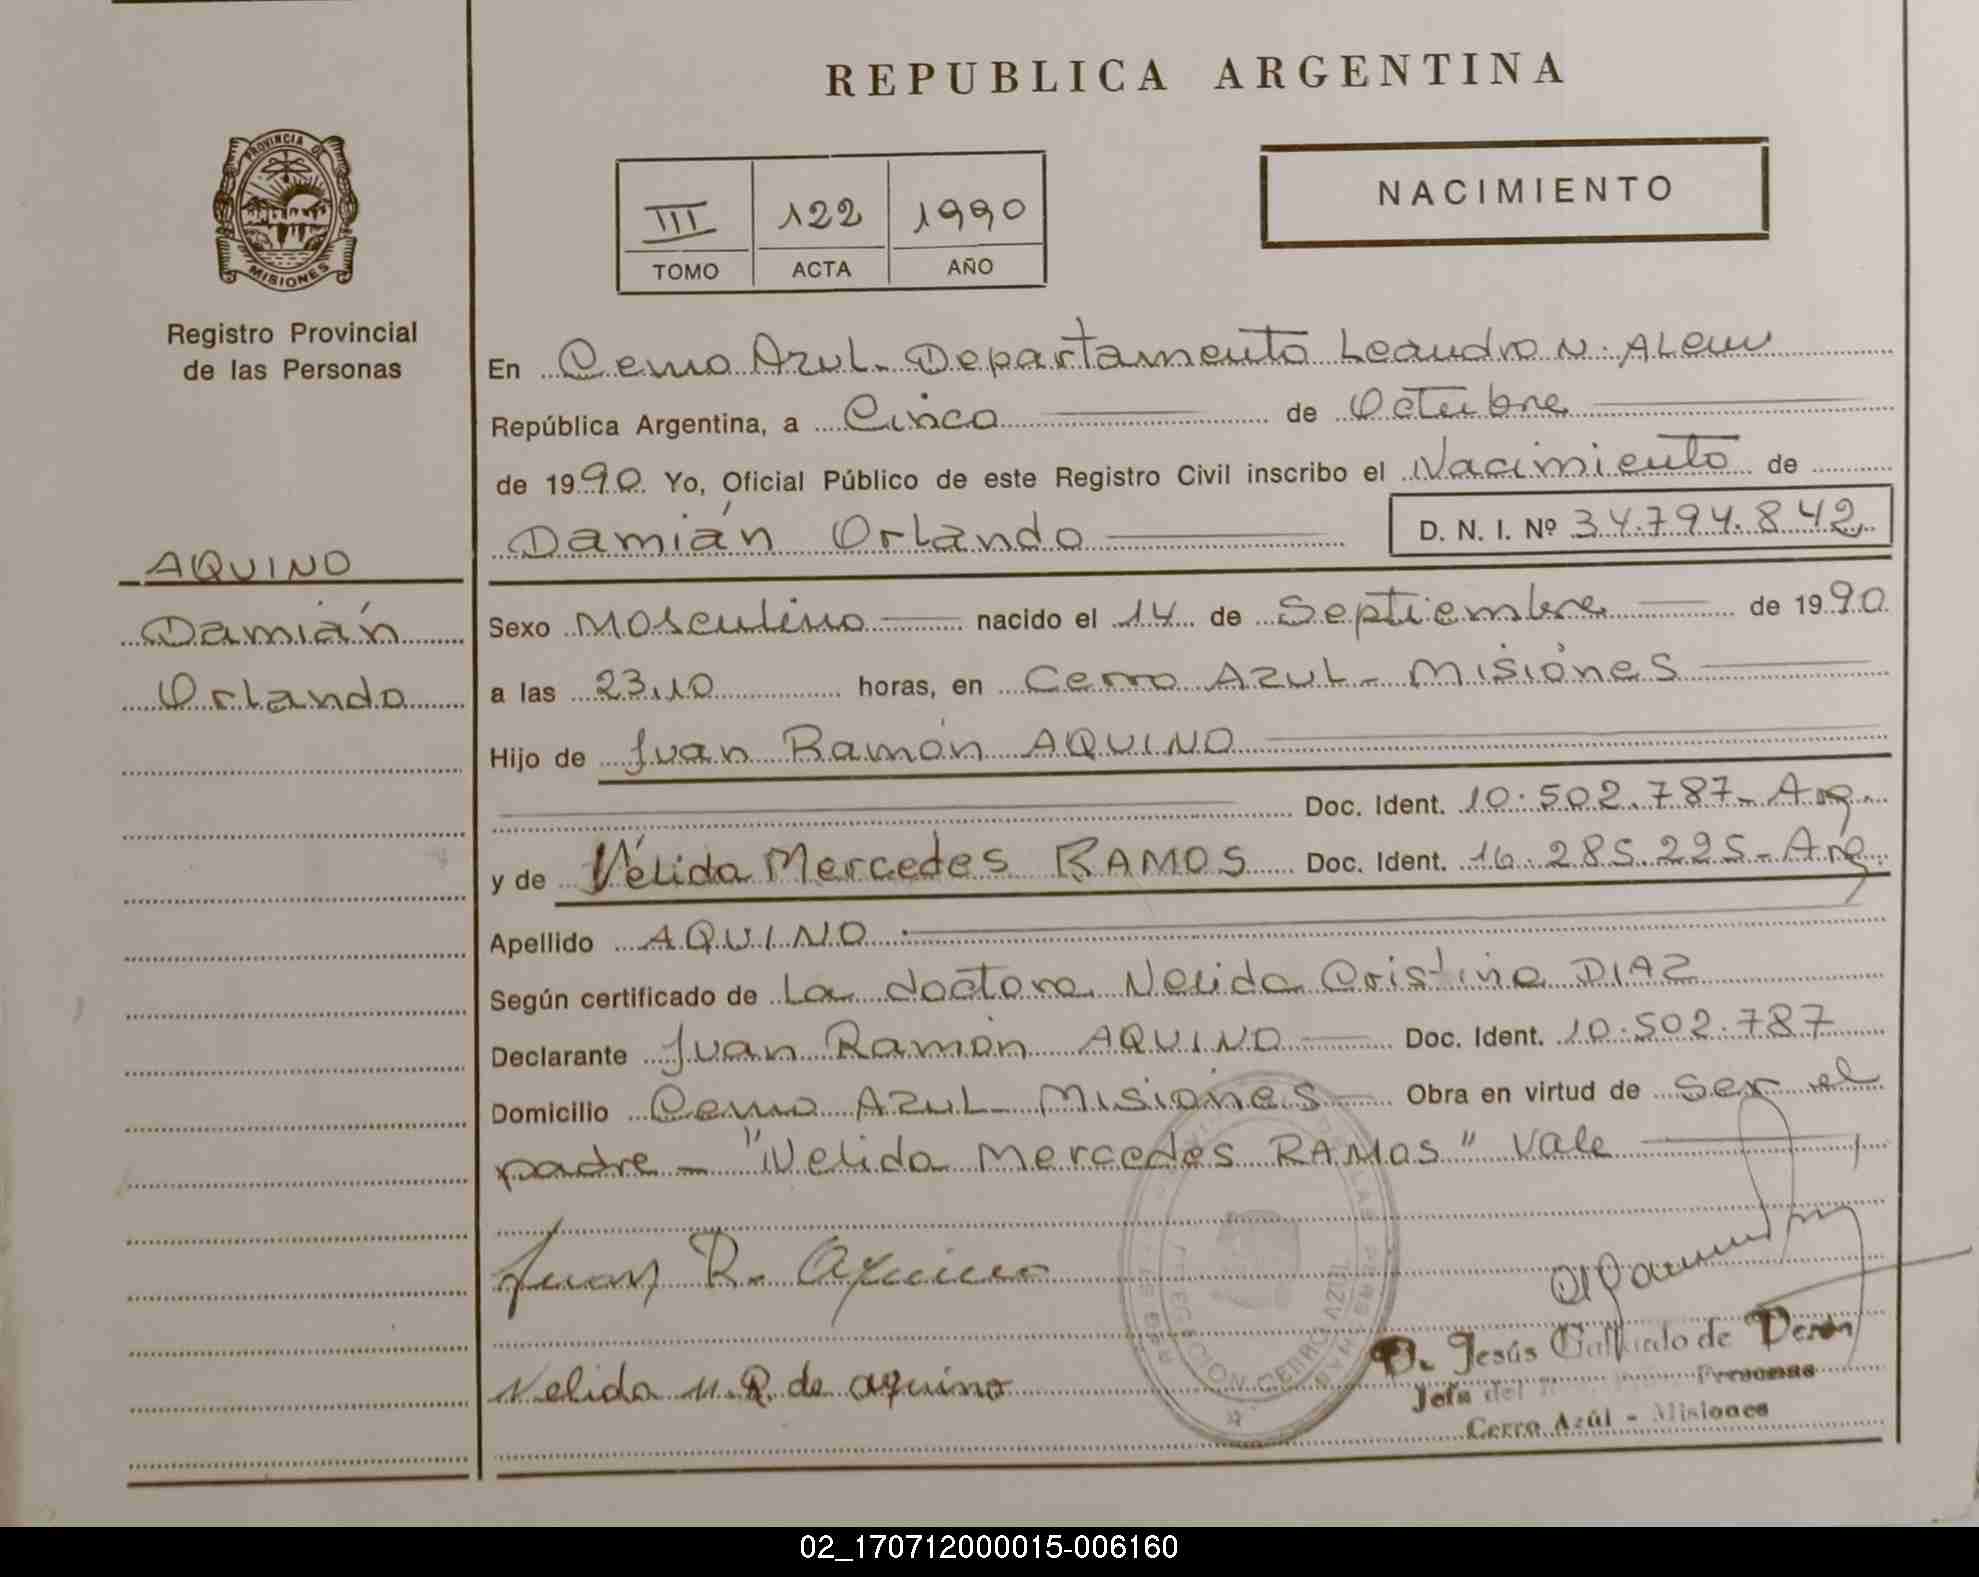 REPUBLICA ARGENTINA
PROVINCIA DE
MISIONES
Registro Provincial
de las Personas
NACIMIENTO
III 122 1990
TOMO ACTA AÑO
En Cerro Azul - Departamento Leandro N. Alem
República Argentina, a Cinco de Octubre
de 1990. Yo, Oficial Público de este Registro Civil inscribo el Nacimiento de
Damián Orlando D. N. I. Nº 34.794.842
AQUINO
Damián
Orlando
Sexo Masculino nacido el 14 de Septiembre de 1990
a las 23,10 horas, en Cerro Azul - Misiones
Hijo de Juan Ramón AQUINO
Doc. Ident. 10.502.787 - Arg.
y de Vélida Mercedes RAMOS Doc. Ident. 16.285.225 - Arg.
Apellido AQUINO
Según certificado de La doctora Nelida Cristina DIAZ
Declarante Juan Ramón AQUINO Doc. Ident. 10.502.787
Domicilio Cerro Azul - Misiones Obra en virtud de ser el
padre - "Nelida Mercedes RAMOS" Vale
Juan R. Aquino
Nelida M. R. de Aquino
CERRO AZUL
Jesús de
Jefa del Personas
Cerro Azúl - Misiones
02_170712000015-006160